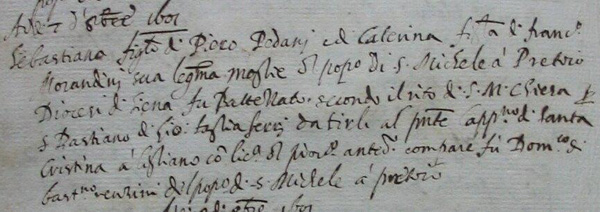 Adi 7 d'8bre 1601
Sebastiano figlo di Piero Podanj et di Caterina figla di Franco
Morandinj sua legma moglie del popo di S. Michele à Pretorio
Diocesi di Siena fu Battezzato secondo il rito di S. M. Chiesa p
S Bastiano di Gio: da al pnte di Santa
Cristina à co lica del antedo compare fù Domco di
bastno venzini del popo di S. Michele à pretorio
1601